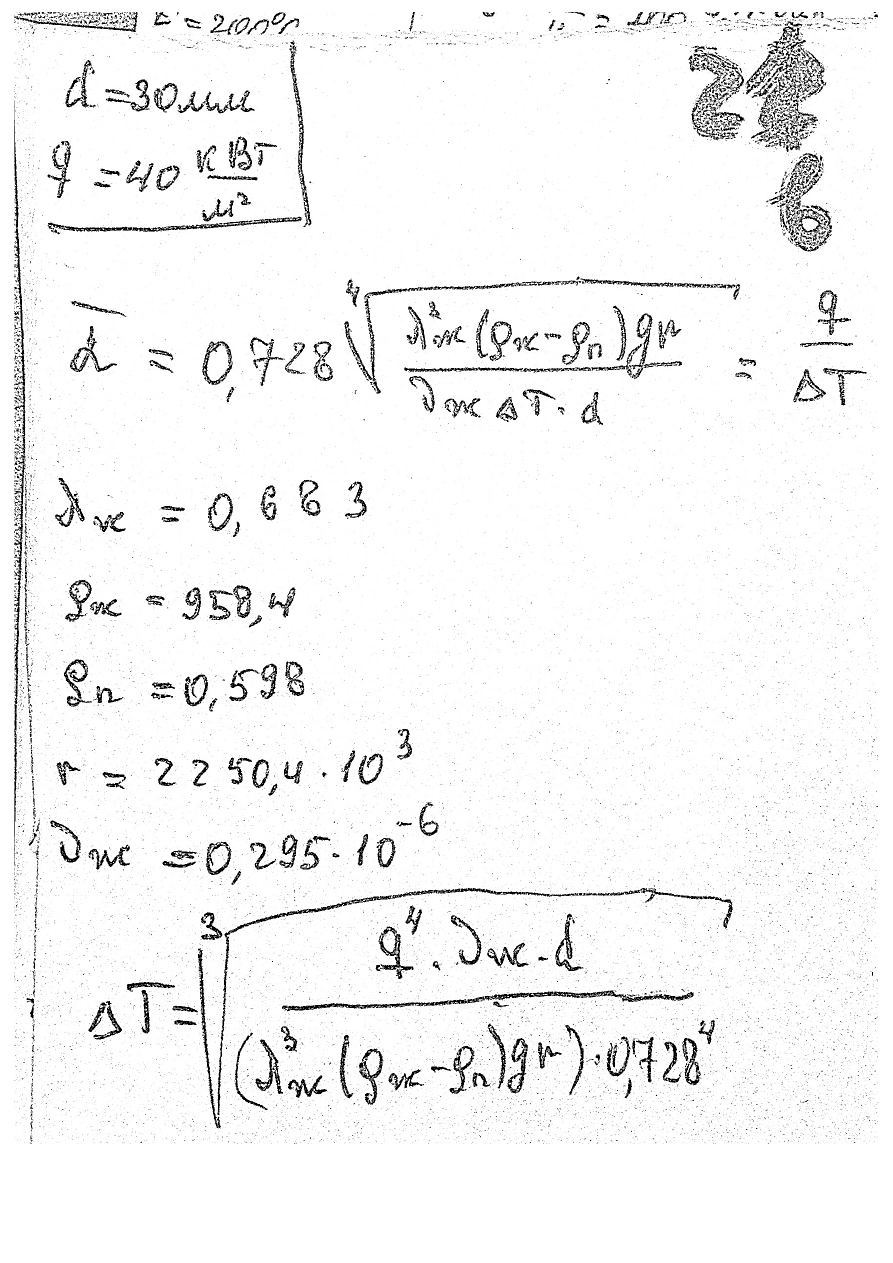 = 200°C
d = 30 мм
q = 40 кВт/м²
21
6
ᾱ = 0,728 ⁴√(λ³ж (ρж - ρп) g r / (νж ΔT · d)) = q / ΔT
λж = 0,683
ρж = 958,4
ρп = 0,598
r = 2250,4 · 10³
νж = 0,295 · 10⁻⁶
ΔT = ³√(q⁴ · νж · d / ((λ³ж (ρж - ρп) g r) · 0,728⁴))